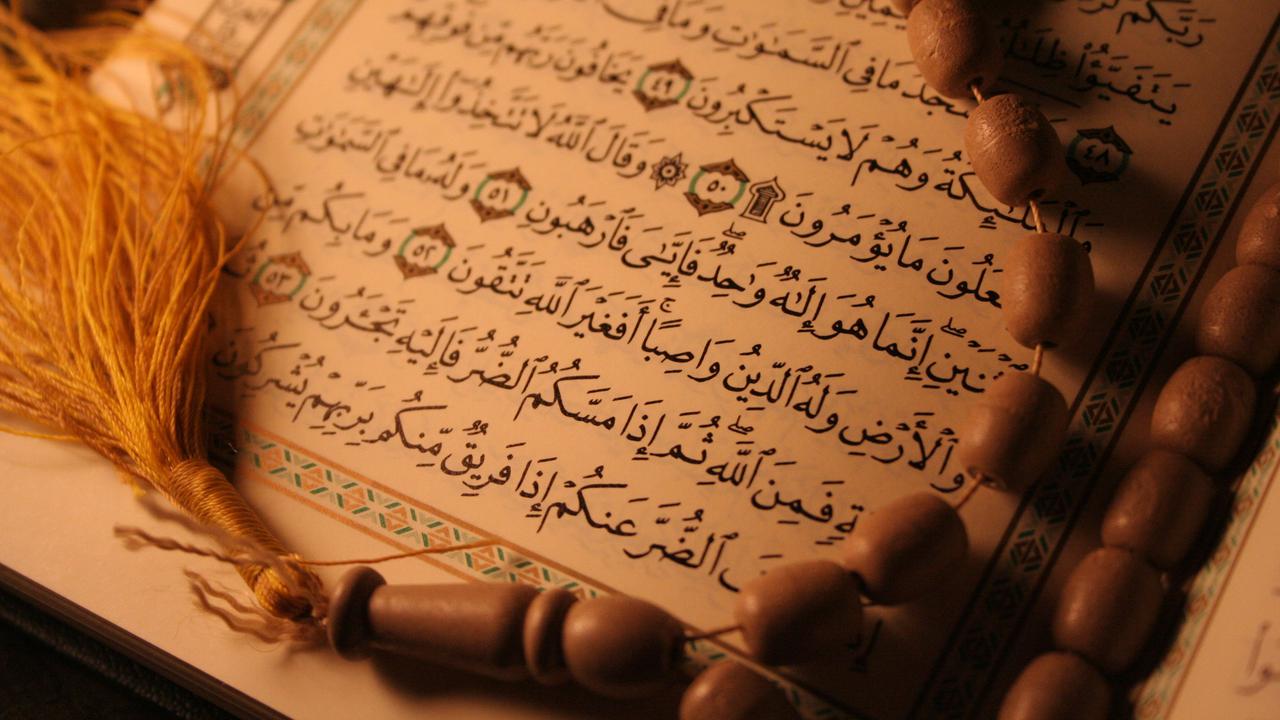 رَبَّكُمْ
يَتَفَيَّؤُا۟ ظِلَٰلُهُۥ
٤٨ مَا فِى ٱلسَّمَٰوَٰتِ وَمَا فِى
وَٱلْمَلَٰٓئِكَةُ وَهُمْ لَا يَسْتَكْبِرُونَ ٤٩ يَخَافُونَ رَبَّهُم مِّن فَوْقِهِمْ
مَا يُؤْمَرُونَ ۩ ٥٠ ۞ وَقَالَ ٱللَّهُ لَا تَتَّخِذُوٓا۟ إِلَٰهَيْنِ
إِنَّمَا هُوَ إِلَٰهٌ وَٰحِدٌ فَإِيَّٰىَ فَٱرْهَبُونِ ٥١ وَلَهُۥ مَا فِى ٱلسَّمَٰوَٰتِ
وَٱلْأَرْضِ وَلَهُ ٱلدِّينُ وَاصِبًا أَفَغَيْرَ ٱللَّهِ تَتَّقُونَ ٥٢ وَمَا بِكُم مِّن
فَمِنَ ٱللَّهِ ثُمَّ إِذَا مَسَّكُمُ ٱلضُّرُّ فَإِلَيْهِ تَجْـَٔرُونَ ٥٣
ٱلضُّرَّ عَنكُمْ إِذَا فَرِيقٌ مِّنكُم بِرَبِّهِمْ يُشْرِكُونَ